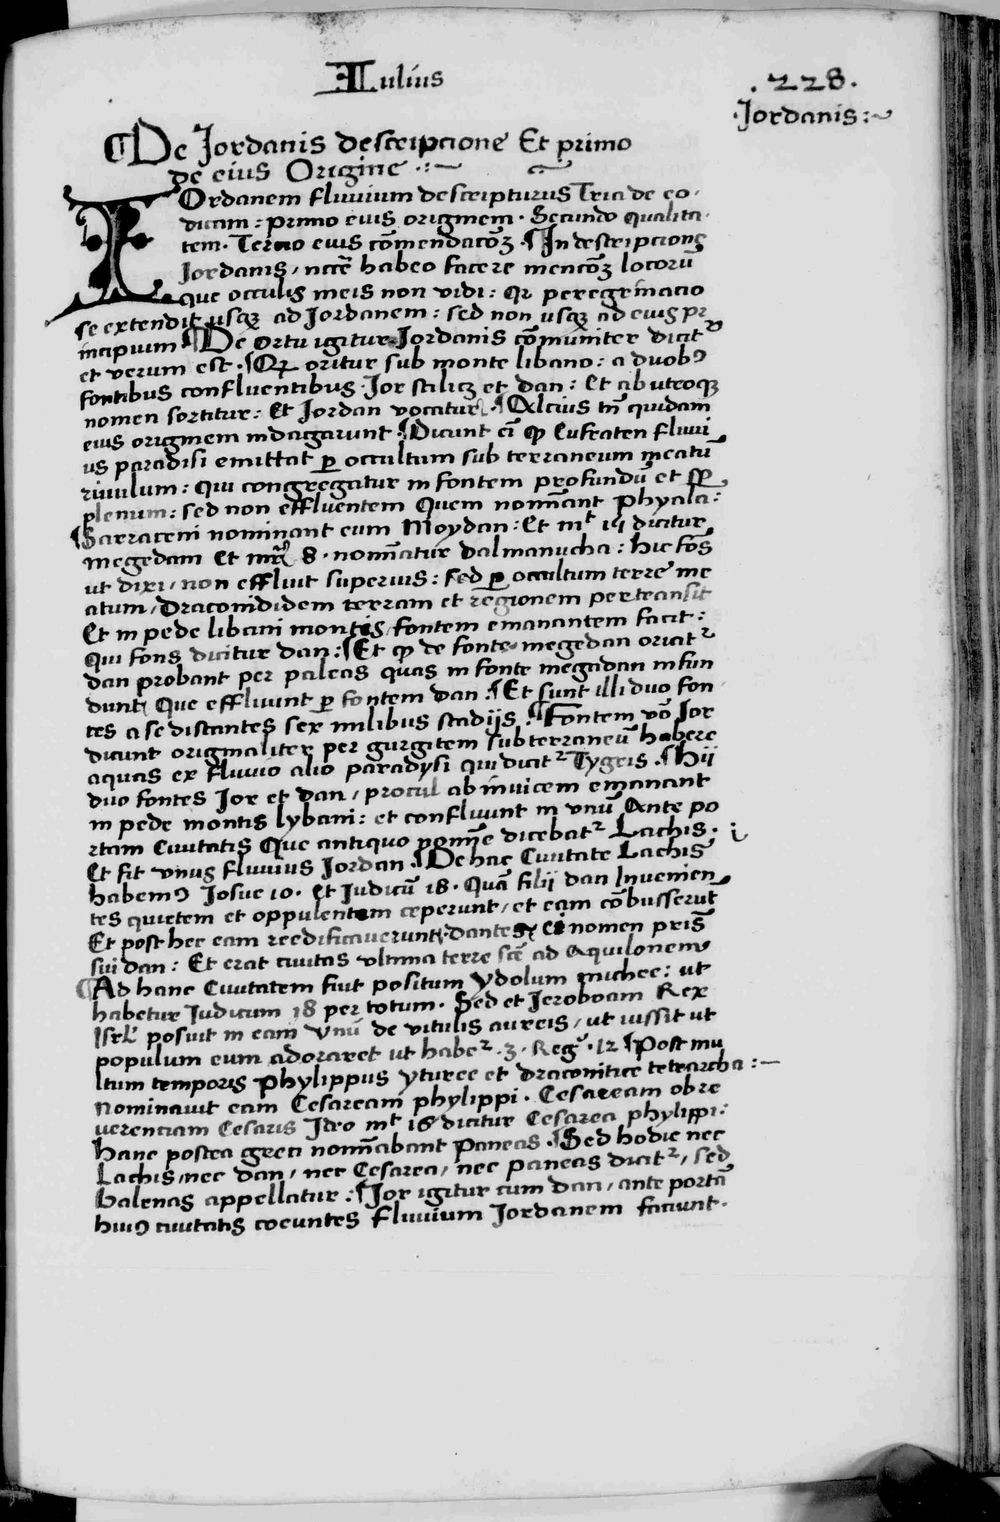 Iulius
.228.
.Jordanis:~
¶De Jordanis descripcione Et primo
de eius Origine
IOrdanem fluvium descripturus Tria de eo.
dicam: primo eius originem. Secundo qualita.
tem. Tercio eius cōmendacōꝫ. ¶In descripcione
Jordanis, nccē habeo facere mencōꝫ locorū
que occulis meis non vidi: Qꝛ peregrinacio
se extendit usqꝫ ad Jordanem: sed non usqꝫ ad eius pr
incipium ¶De ortu igitur Jordanis cōmuniter dicitᷣ
et verum est. ¶Qꝛ oritur sub monte libano: a duobꝰ
fontibus confluentibus. Jor scilicꝫ et dan: Et ab utroqꝫ
nomen sortitur: Et Jordan vocatur. ¶Alcius tñ quidam
eius originem indagarunt. ¶Dicunt eī ꝙ Eufraten fluvi
us paradisi emittat ꝑ occultum sub terraneum meatū
rivulum: qui congregatur in fontem profundū et
plenum: sed non effluentem Quem nomīant Phyala:
¶Sarraceni nominant eum Moydan: Et mᵗ 15 dicitur
megedam Et mʳ 8. nomīatur dalmanucha: hic fōs
ut dixi, non effluit superius: sed ꝑ occultum terre me
atum, Draconididem terram et regionem pertransit
Et in pede libani montis, fontem emanantem facit:
Qui fons dicitur dan: ¶Et ꝙ de fonte megedan oriatᷣ
dan probant per paleas quas in fonte megidan infun
dunt, Que effluunt ꝑ fontem dan. ¶Et sunt illi duo fon
tes a se distantes sex milibus stadijs. ¶Fontem vō Jor
dicunt originaliter per gurgitem subterraneū habere
aquas ex fluvio alio paradysi qui dicitᷣ Tygris. ¶Hii
duo fontes Jor et dan, procul ab invicem emanant
in pede montis lybani: et confluunt in vnū Ante po
rtam Civitatis Que antiquo nomīe dicebatᷣ Lachis.
Et fit vnus fluvius Jordan. ¶De hac Civitate Lachis
habemꝰ Josue 10. Et Judicū 18. Quā filii dan Invenien
tes quietem et oppulentam ceperunt, et eam cōbusserūt
Et post hec eam reedificaverunt, dantes ei nomen pris
sui dan: Et erat civitas vltima terre scē ad Aquilonem
¶Ad hanc Civitatem fuit positum ydolum michee: ut
habetur Judicum 18 per totum. Sed et Jeroboam Rex
Isrł posuit in eam vnū de vitulis aureis, ut iussit ut
populum eum adoraret ut habeᷣ. 3. Reg. 12 ¶Post mu
ltum temporis Phylippus yturee et draconitice tetrarcha:~
Nominavit eam Cesaream phylippi. Cesaream ob re
verenciam Cesaris Ideo mᵗ 16 dicitur Cesarea phylippi:
hanc postea greci nomīabant Paneas. ¶Sed hodie nec
Lachis, nec dan, nec Cesarea, nec paneas dicitᷣ, sed
balenas appellatur: ¶Jor igitur cum dan, ante portā
huiꝰ civitatis coeuntes fluvium Jordanem faciunt.